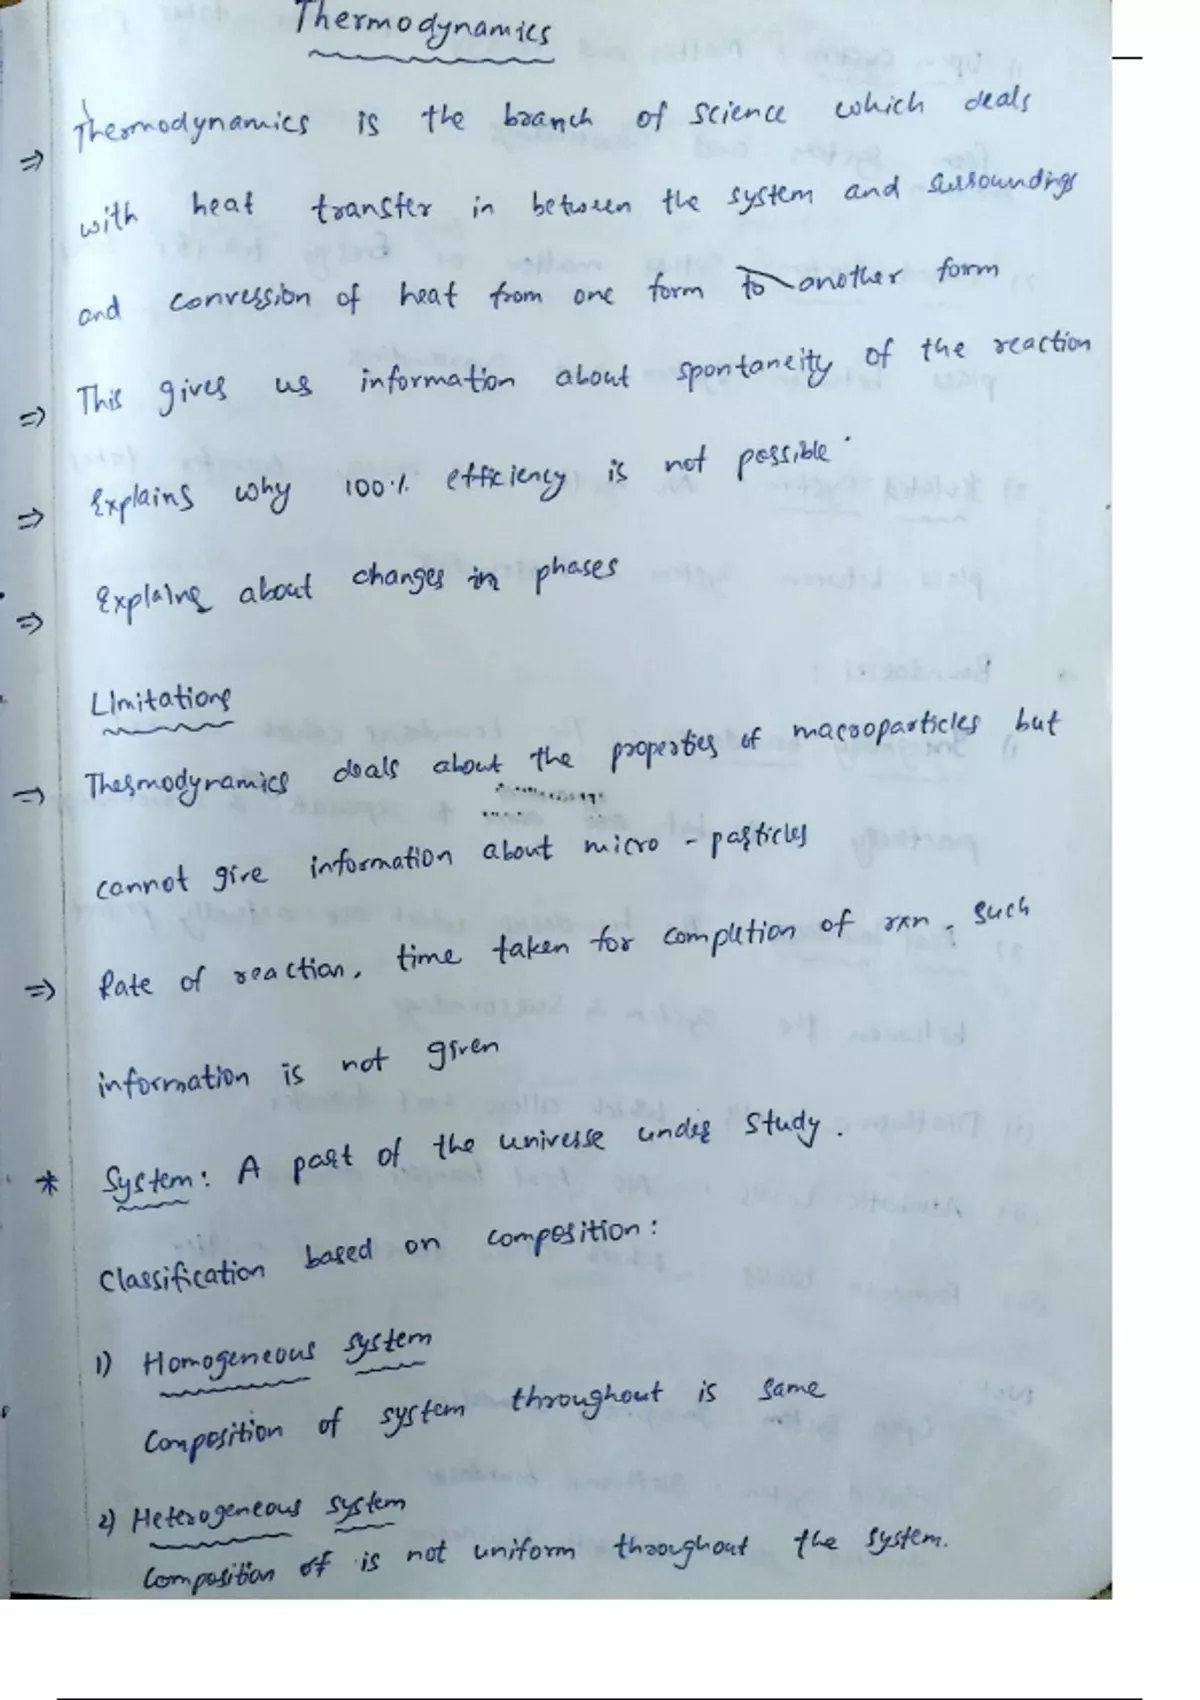 Thermodynamics
⇒ Thermodynamics is the branch of science which deals
with heat transfer in between the system and surroundings
and conversion of heat from one form to another form
⇒ This gives us information about spontaneity of the reaction
⇒ Explains why 100% efficiency is not possible.
⇒ Explains about changes in phases
Limitations
⇒ Thermodynamics deals about the properties of macroparticles but
cannot give information about micro-particles
⇒ Rate of reaction, time taken for completion of rxn, such
information is not given
* System: A part of the universe under study.
Classification based on composition:
1) Homogeneous system
Composition of system throughout is same
2) Heterogeneous system
Composition of is not uniform throughout the system.